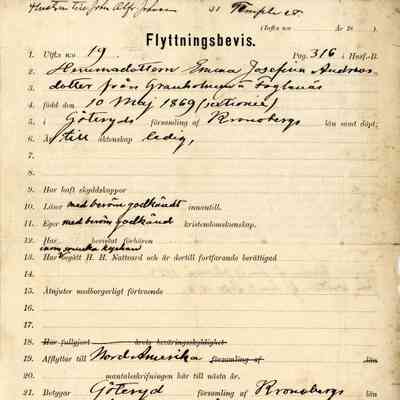 Hustru till John Alfr Johnson 31 Temple st.
(Utfts n:o År 18 ).
Flyttningsbevis.
1. Utfts n:o 19. Pag. 316 i Husf.-B.
2. Hemmadottern Emma Josefina Andreas-
3. dotter från Granholmen i Foglanäs
4. född den 10 Maj 1869 (sextionio)
5. i Göteryds församling af Kronobergs län samt döpt;
6. Är till äktenskap ledig,
7.
8.
9. Har haft skyddskoppor
10. Läser med beröm godkändt innantill.
11. Eger med beröm godkänd kristendomskunskap.
12. Har bevistat förhören
inom svenska kyrkan
13. Har begått H. H. Nattvard och är dertill fortfarande berättigad
14.
15. Åtnjuter medborgerligt förtroende
16.
17.
18. Har fullgjort årets beväringsskyldighet
19. Afflyttar till Nord Amerika församling af län
20. mantalsskrifningen här till nästa år.
21. Betygar Göteryd församling af Kronobergs län